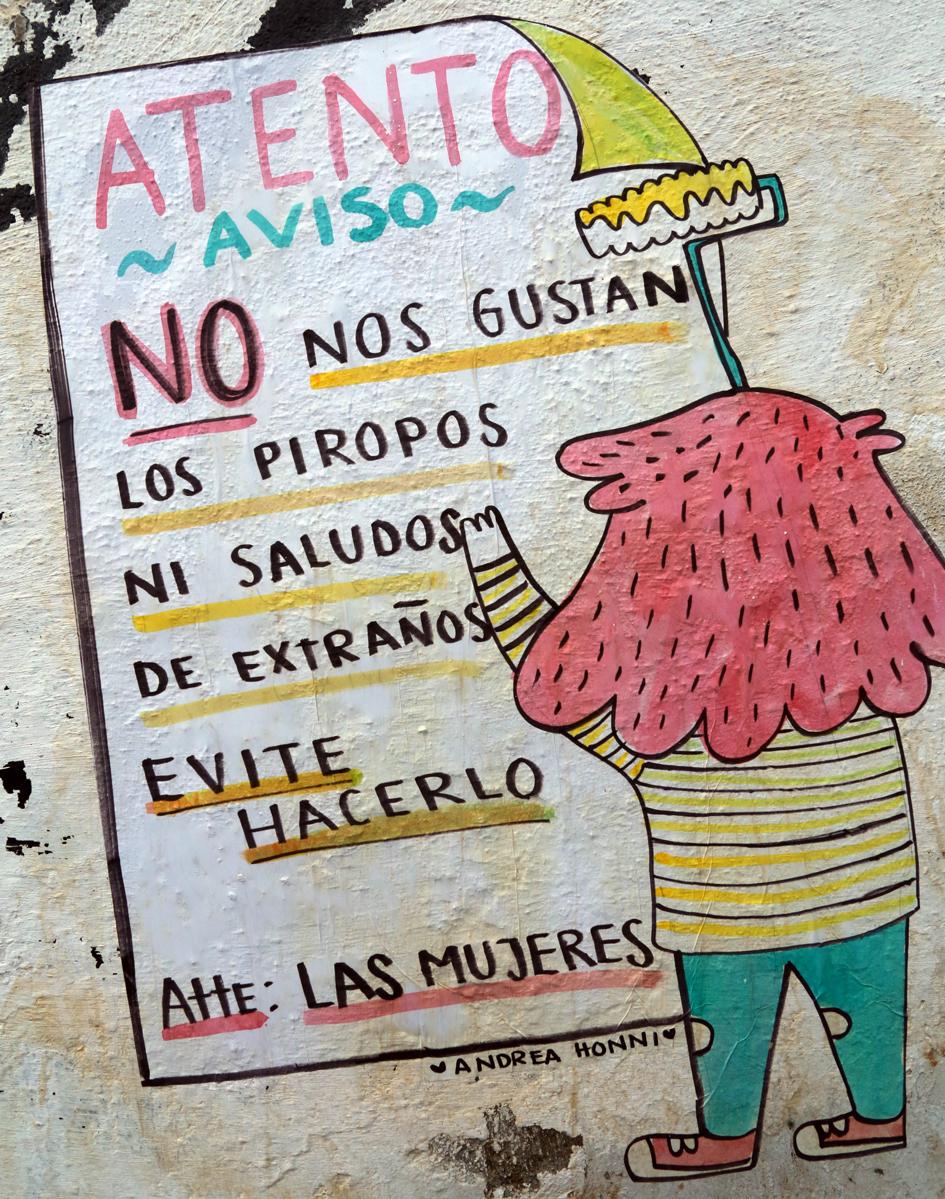 ATENTO
~AVISO~
NO NOS GUSTAN
LOS PIROPOS
NI SALUDOS
DE EXTRAÑOS
EVITE
HACERLO
Atte: LAS MUJERES
♥ANDREA HONNI♥